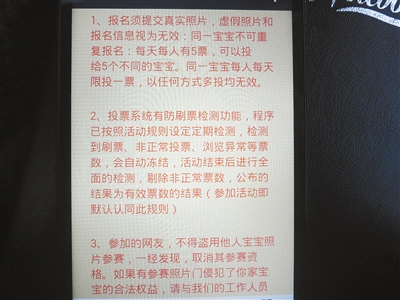 1、报名须提交真实照片，虚假照片和
报名信息视为无效；同一宝宝不可重
复报名；每天每人有5票，可以投
给5个不同的宝宝。同一宝宝每人每天
限投一票，以任何方式多投均无效。
2、投票系统有防刷票检测功能，程序
已按照活动规则设定定期检测，检测
到刷票、非正常投票、浏览异常等票
数，会自动冻结，活动结束后进行全
面的检测，剔除非正常票数，公布的
结果为有效票数的结果（参加活动即
默认认同此规则）
3、参加的网友，不得盗用他人宝宝照
片参赛，一经发现，取消其参赛资
格。如果有参赛照片门侵犯了你家宝
宝的合法权益，请与我们的工作人员